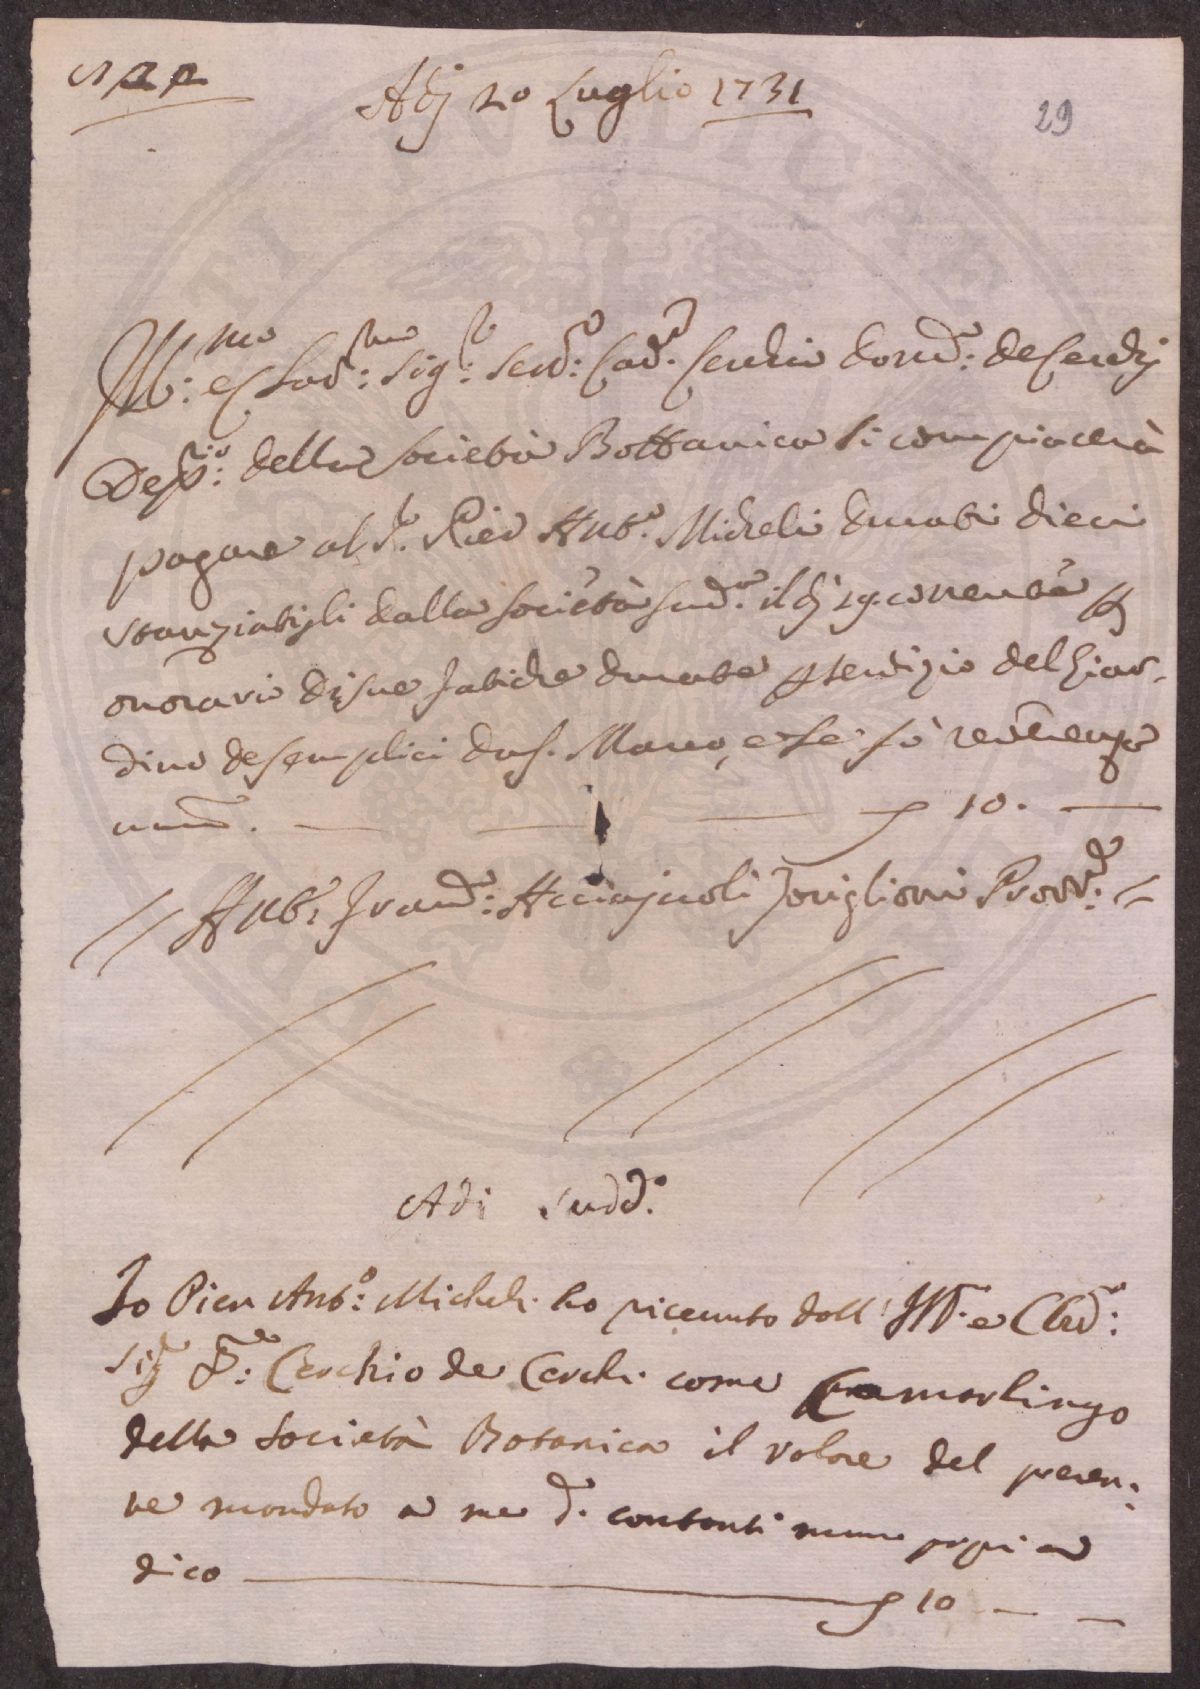 Adj 20 Luglio 1731
29
Ill:mo e Sig:r Cav:e Cerchio de Cerchj
Dep:rio della Società Bottanica si compiacerà
pagare al S.r Pier Ant.o Micheli ducati dieci
stanziatigli dalla Società sud.a il dj 19. corrente
onorari di sue fatiche durate servizio del Giar-
dino de semplici da S. Marco, e se
10.
Ant:o Franc:o Acciajuoli Toriglioni Provv:e
Adi sudd.o
Io Pier Ant:o Micheli ho riceuuto dall' Ill.mo e
Sig.r Cerchio de Cerchi come Camarlingo
della Società Botanica il valore del presen:
te mandato a me d. contanti
dico 10